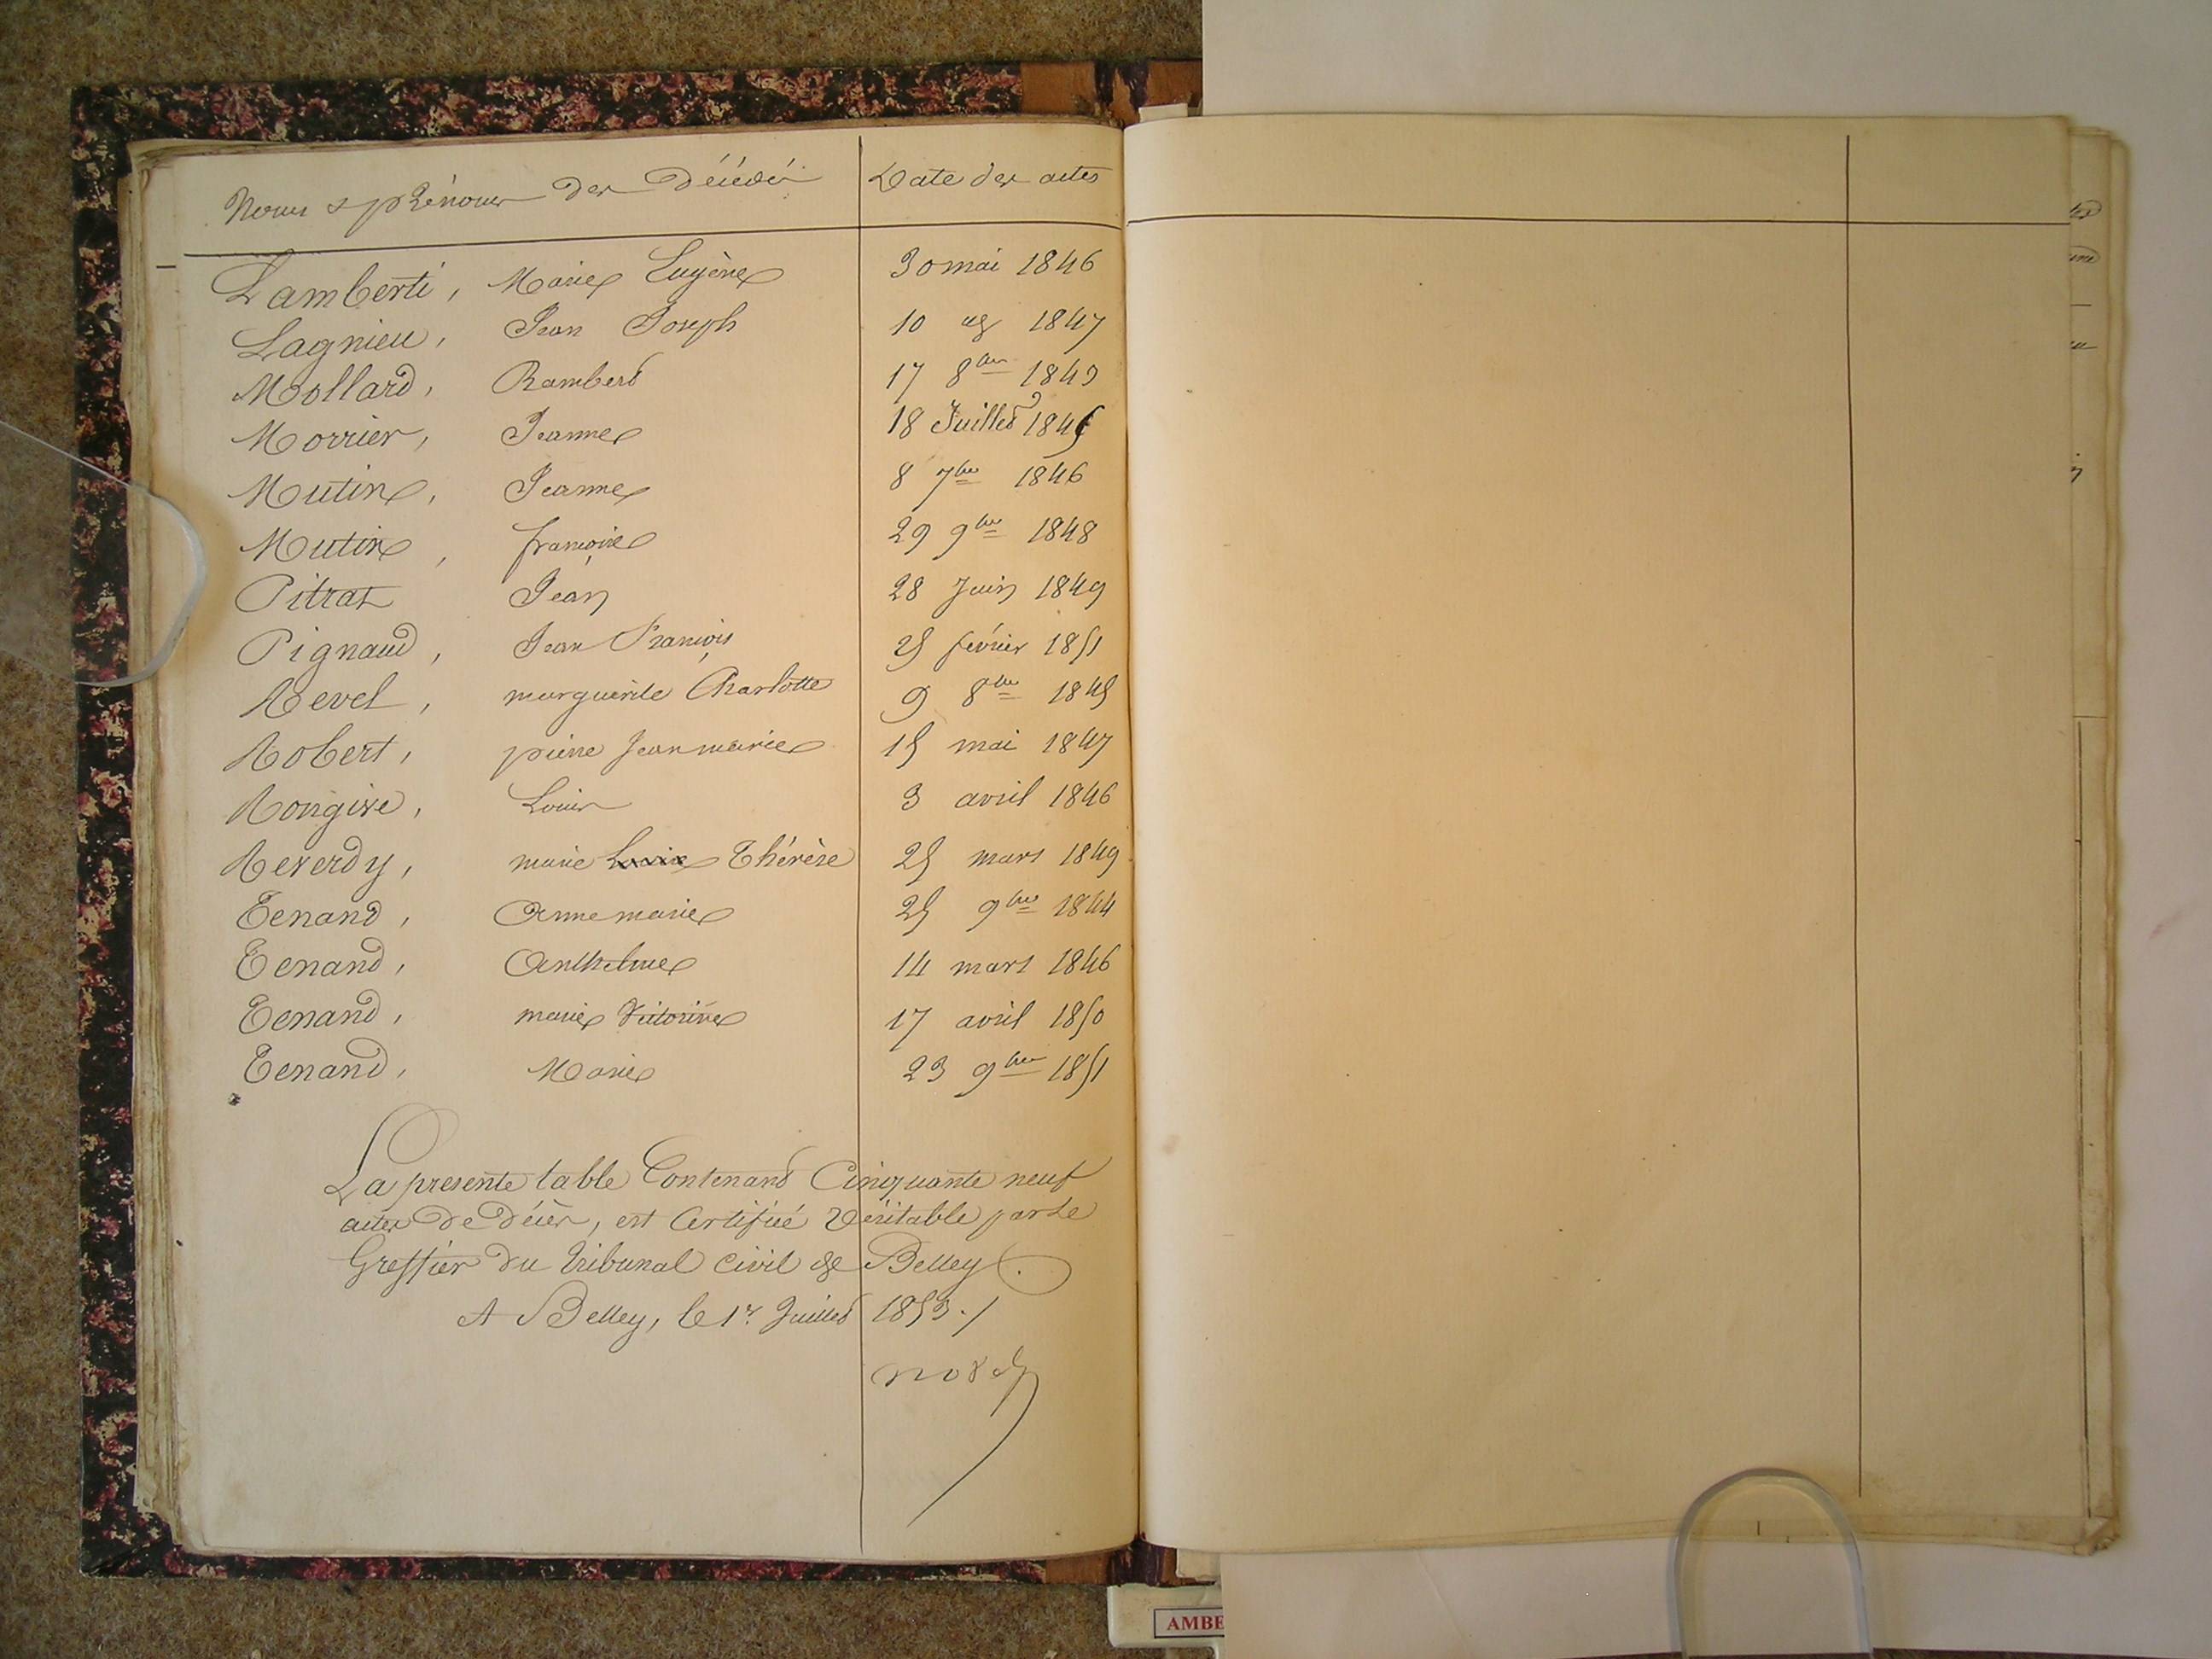 Noms & prénoms des décédés Date des actes
Lamberti, Marie Eugène 30 mai 1846
Lagnieu, Jean Joseph 10 1847
Mollard, Rambert 17 8bre 1849
Morrier, Jeanne 18 Juillet
Mutin, Jeanne 8 7bre 1846
Mutin, françoise 29 9bre 1848
Pitrat Jean 28 Juin 1849
Pignaud, Jean François 25 février 1851
Revel, marguerite Charlotte 9 8bre 1845
Robert, pierre Jean marie 15 mai 1847
Rougire, Louis 3 avril 1846
Reverdy, marie Louise Thérèse 25 mars 1849
Tenand, Anne marie 25 9bre 1844
Tenand, Anthelme 14 mars 1846
Tenand, marie Victorine 17 avril 1850
Tenand, Marie 23 9bre 1851
La presente table Contenant Cinquante neuf
actes de décès, est Certifiée Véritable par Le
Greffier du tribunal civil de Belley.
A Belley, le 1er Juillet 1853./
AMBE